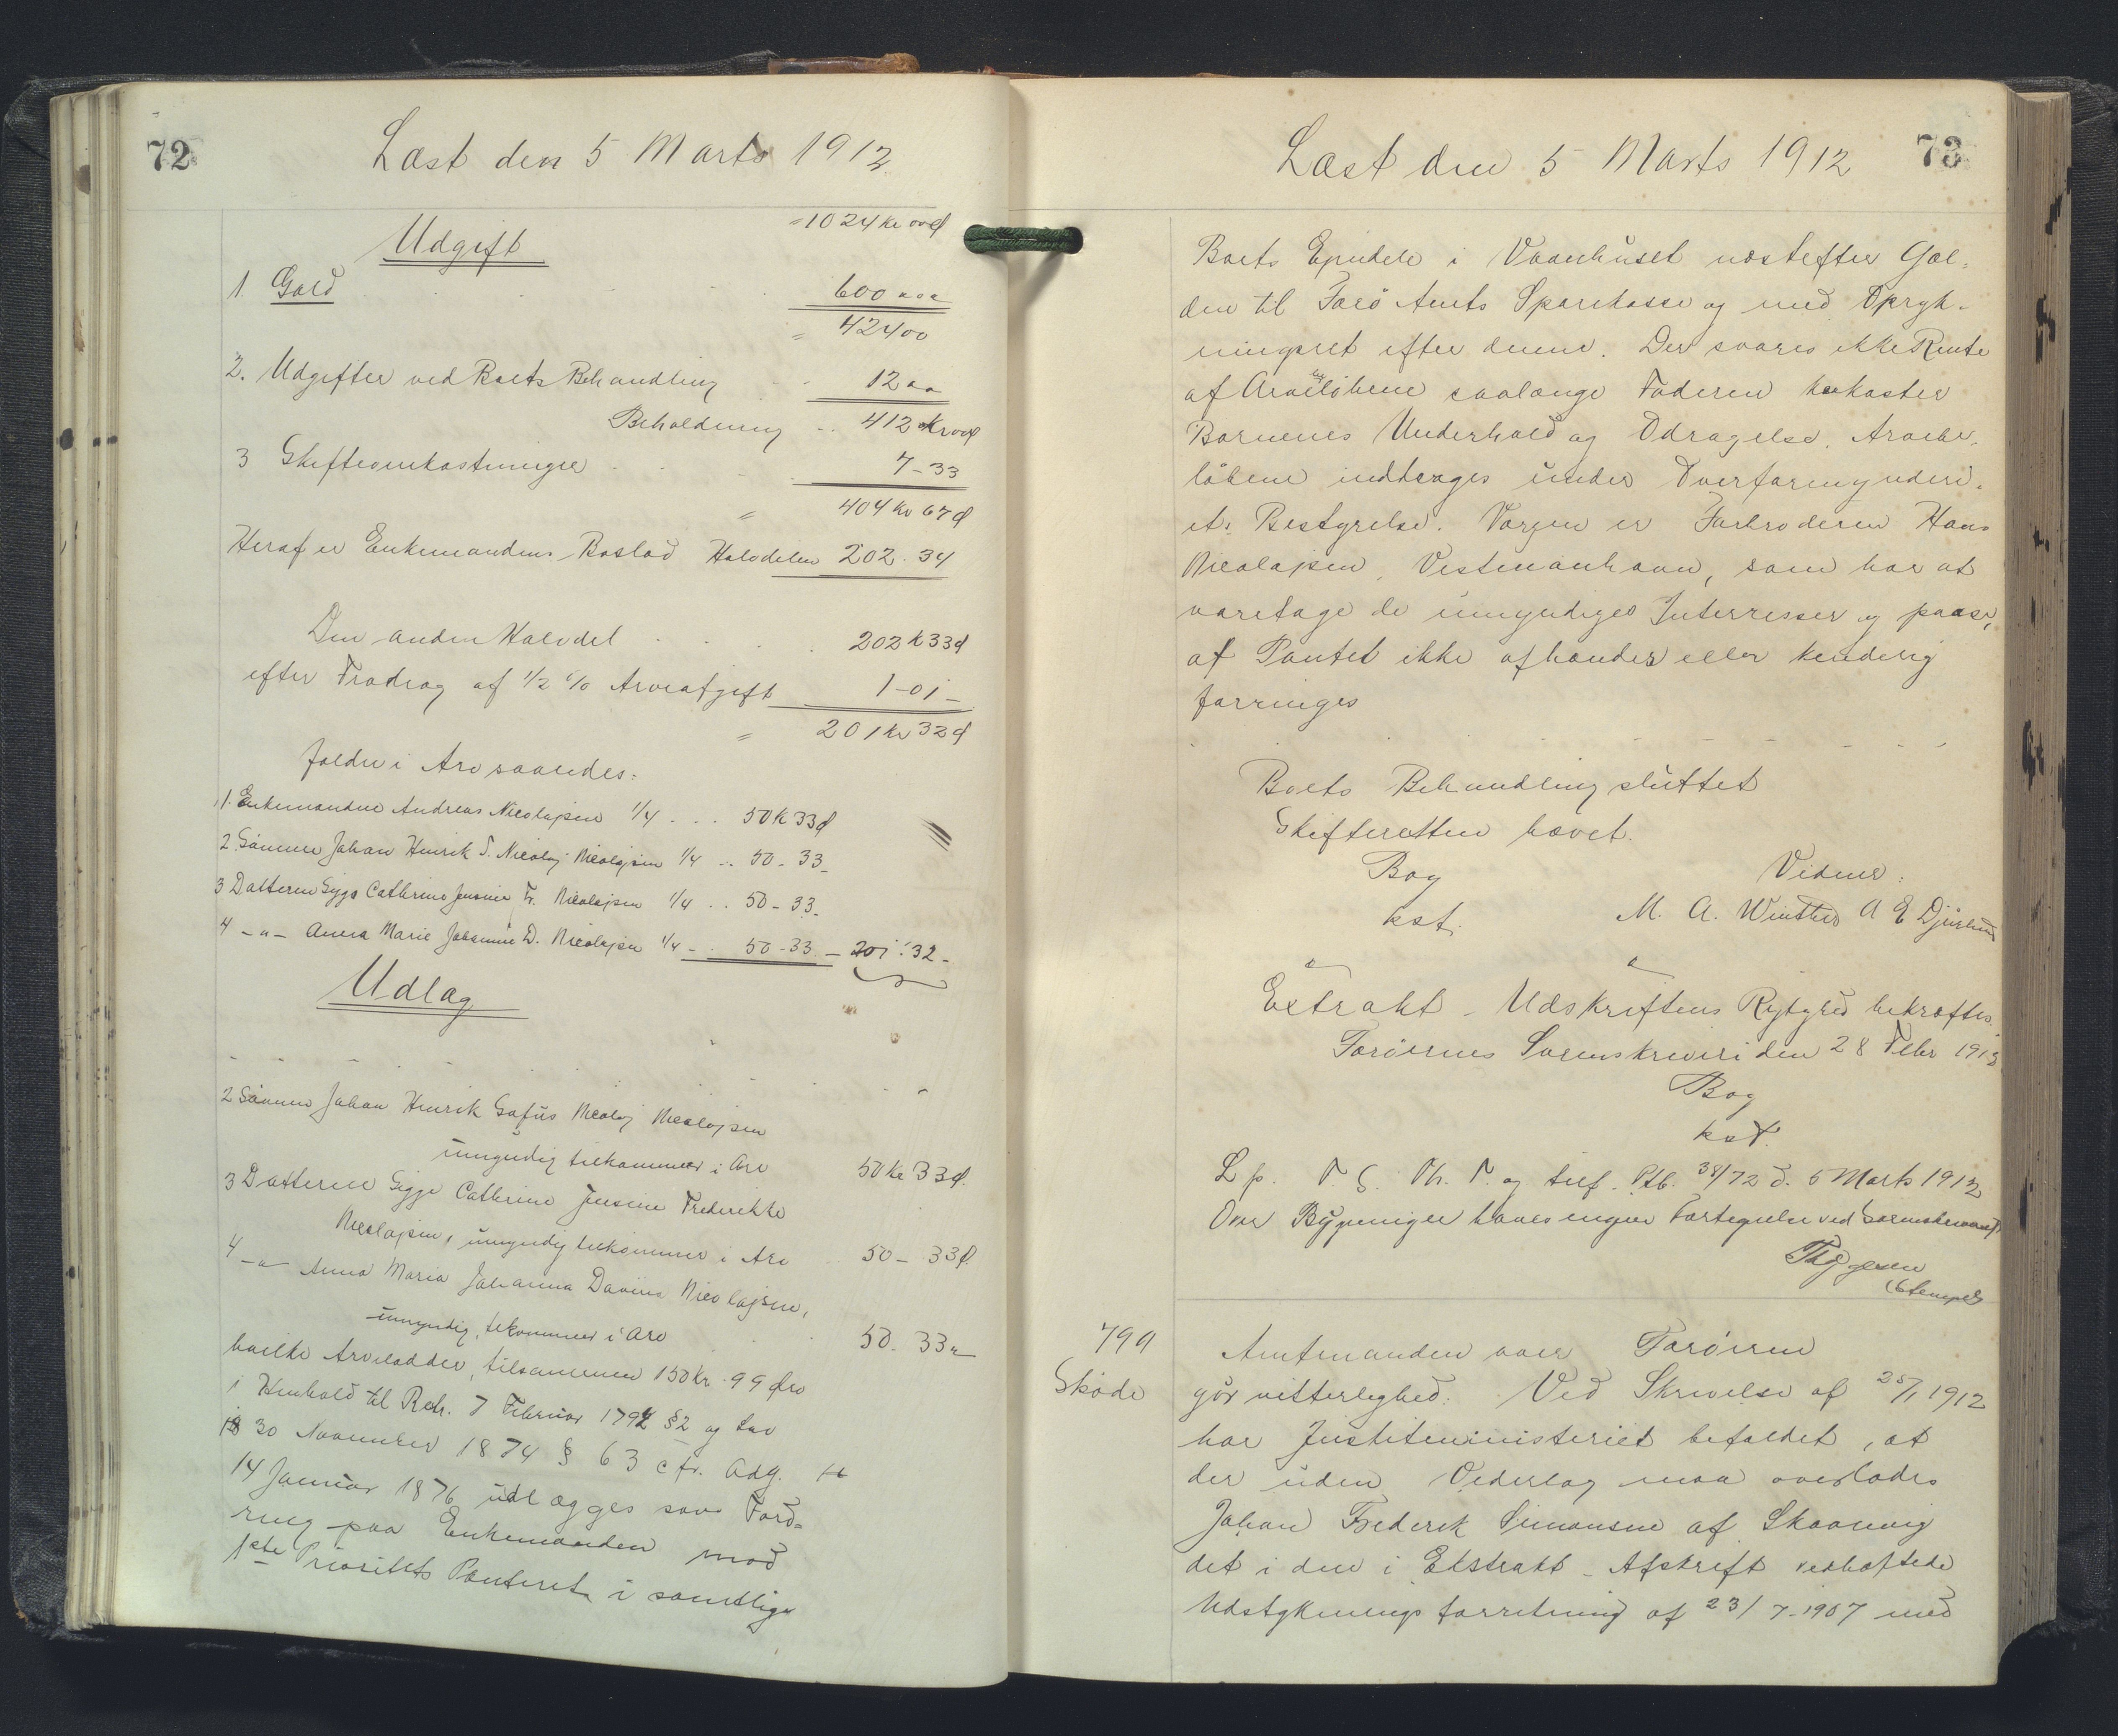 72
Læst den 5 Marts 1912
= 1024 Kr 00 Ø
Udgift
1. Gæld . . . 600 " "
= 424 00
2. Udgifter ved Boets Behandling . . 12 " "
Beholdning . . 412 Kr 00 Ø
3 Skifteomkostninger . . . 7-33
= 404 Kr 67 Ø
Heraf er Enkemandens Boslod Halvdelen 202. 34
Den anden Halvdel . . . 202 K 33 Ø
efter Fradrag af 1/2 % Arveafgift 1-01-
= 201 Kr 32 Ø
falder i Arv saaledes:
1. Enkemanden Andreas Nicolajsen 1/4 . . . 50 K 33 Ø
2. Sønnen Johan Henrik S. Nicolaj Nicolajsen 1/4 .. 50-33-
3 Datteren Sigga Cathrine Jensine Fr. Nicolajsen 1/4 .. 50-33-
4 -"- Anna Marie Johanne D. Nicolajsen 1/4 - . 50-33 - 201:32-
Udlæg
2 Sønnen Johan Henrik Sofus Nicolaj Nicolajsen
umyndig tilkommer i Arv 50 Kr 33 Ø.
3 Datteren Sigga Cathrine Jensine Frederikke
Nicolajsen, umyndig tilkommer i Arv 50-33 Ø.
4 -"- Anna Maria Johanna Davina Nicolajsen,
umyndig, tilkommer i Arv . . 50-33 "
hvilke Arvelodder, tilsammen 150 Kr. 99 Øre
i Henhold til Rskr. 7 Februar 1794 § 2 og Lov
30 November 1874 § 63 cfr. Adg.
14 Januar 1876 udlægges som Ford-
ring paa Enkemanden mod
1ste Prioritets Panteret i samtlige
73
Læst den 5 Marts 1912
Boets Ejendele i Vaanhuset næstefter Gæl-
den til Færø Amts Sparekasse og med Opryk-
ningsret efter denne. Der svares ikke Rente
af Arvebeløbene saalænge Faderen bekoster
Børnenes Underhold og Opdragelse. Arvebe-
løbene inddrages under Overformynderi-
ets Bestyrelse. Værgen er Farbroderen Hans
Nicolajsen, Vestmanhavn, som har at
varetage de umyndiges Interresser og paase,
at Pantet ikke afhændes eller kendelig
forringes
Boets Behandling sluttet
Skifteretten hævet.
Bog
kst.
Vidner:
M. A. Winther A E Djurhuus
Extrakt-Udskriftens Rigtighed bekræftes
Færøernes Sorenskriveri den 28 Febr 1912
Bog
kst.
L p. F. S. Th. T. og tilf. Ptb. 38/72 d. 5 Marts 1912
Over Bygninger haves ingen Fortegnelse ved Sorenskriveriet
Thygesen
(Stempel)
799
Skøde
Amtmanden over Færøerne
gør vitterlighed: Ved Skrivelse af 25/1 1912
har Justitsministeriet befaldet, at
der uden Vederlag maa overlades
Johan Frederik Simonsen af Skaanevig
det i den i Ekstrakt-Afskrift vedhæftede
Udstykningsforretning af 23/7-1907 med